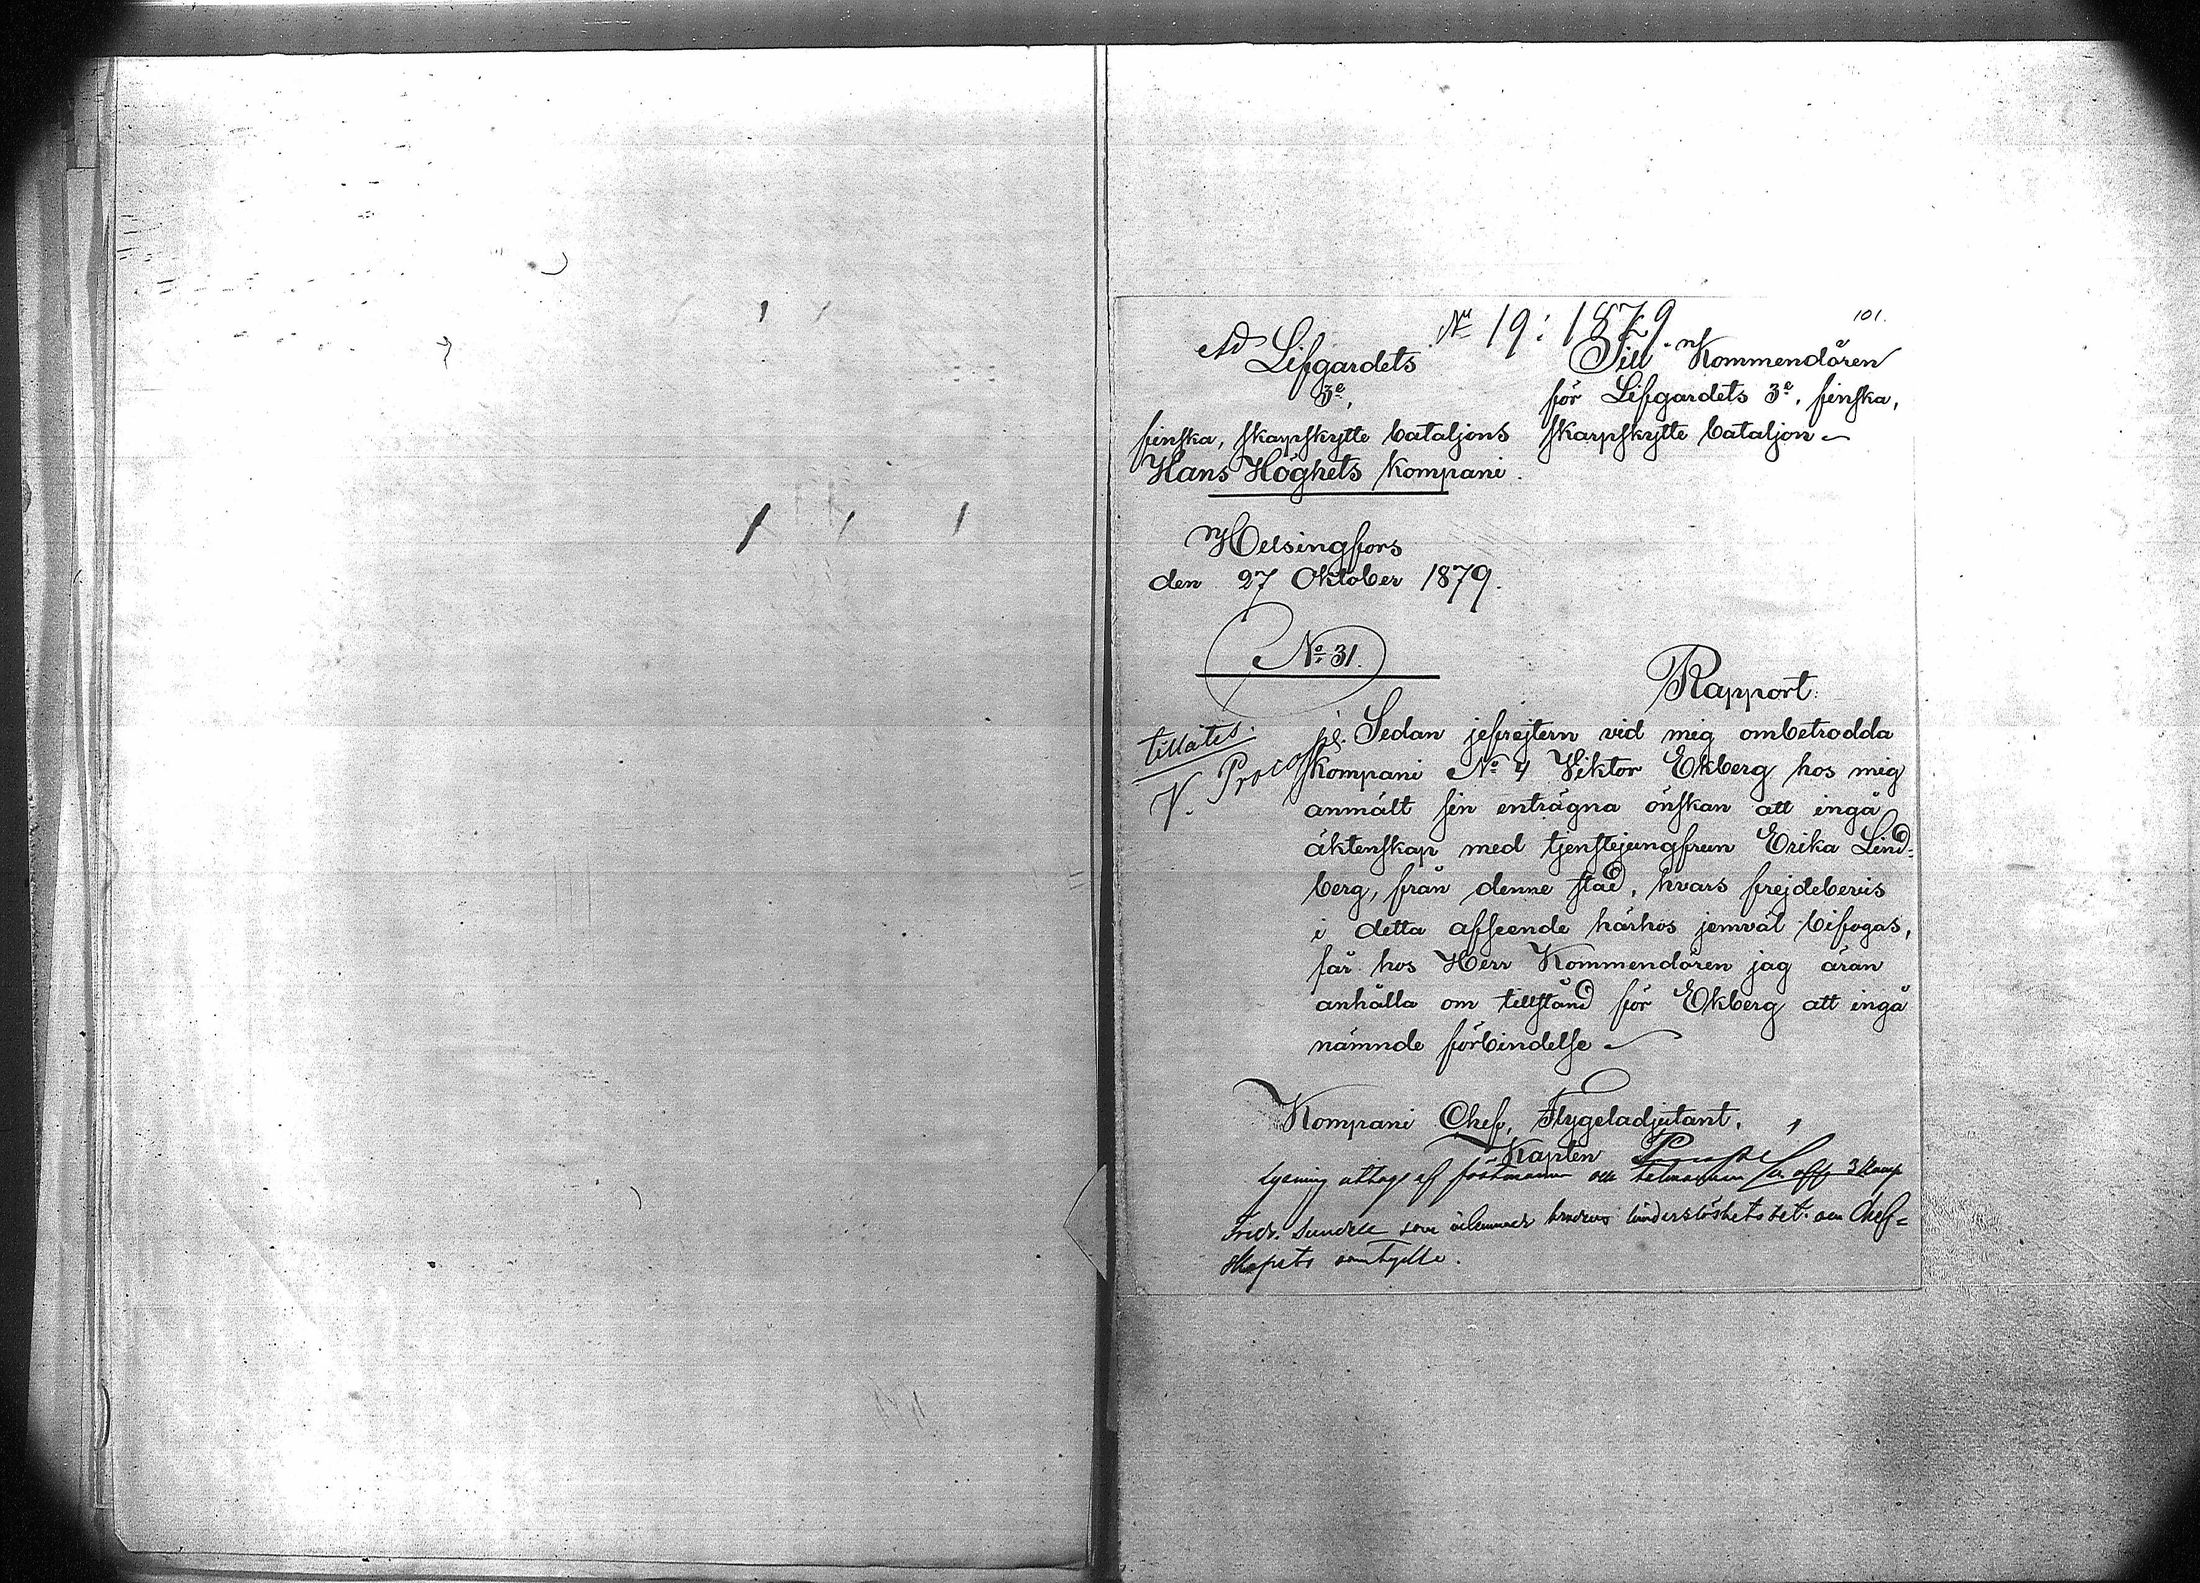 Ad № 19: 1879.
101.
Lifgardets
3e,
finska, skarpskytte bataljons
Hans Höghets Kompani.
Till Kommendören
för Lifgardets 3e, finska,
skarpskytte bataljon
Helsingfors
den 27 Oktober 1879.
№ 31.
Rapport.
tillåtes.
V. Procopé.
Sedan jefrejtern vid mig ombetrodda
Kompani № 4 Viktor Ekberg hos mig
anmält sin enträgna önskan att ingå
äktenskap med tjenstejungfrun Erika Lind-
berg, från denne stad, hvars frejdebevis
i detta afseende härhos jemväl bifogas,
får hos Herr Kommendören jag äran
anhålla om tillstånd för Ekberg att ingå
nämnde förbindelse
Kompani Chef, Flygeladjutant,
Kapten
Lysning uttags af fästmannen och talmannen
Fridr. Sundell som inlemnade brudens hinderslöshetsbet. och Chef=
skapets samtycke.